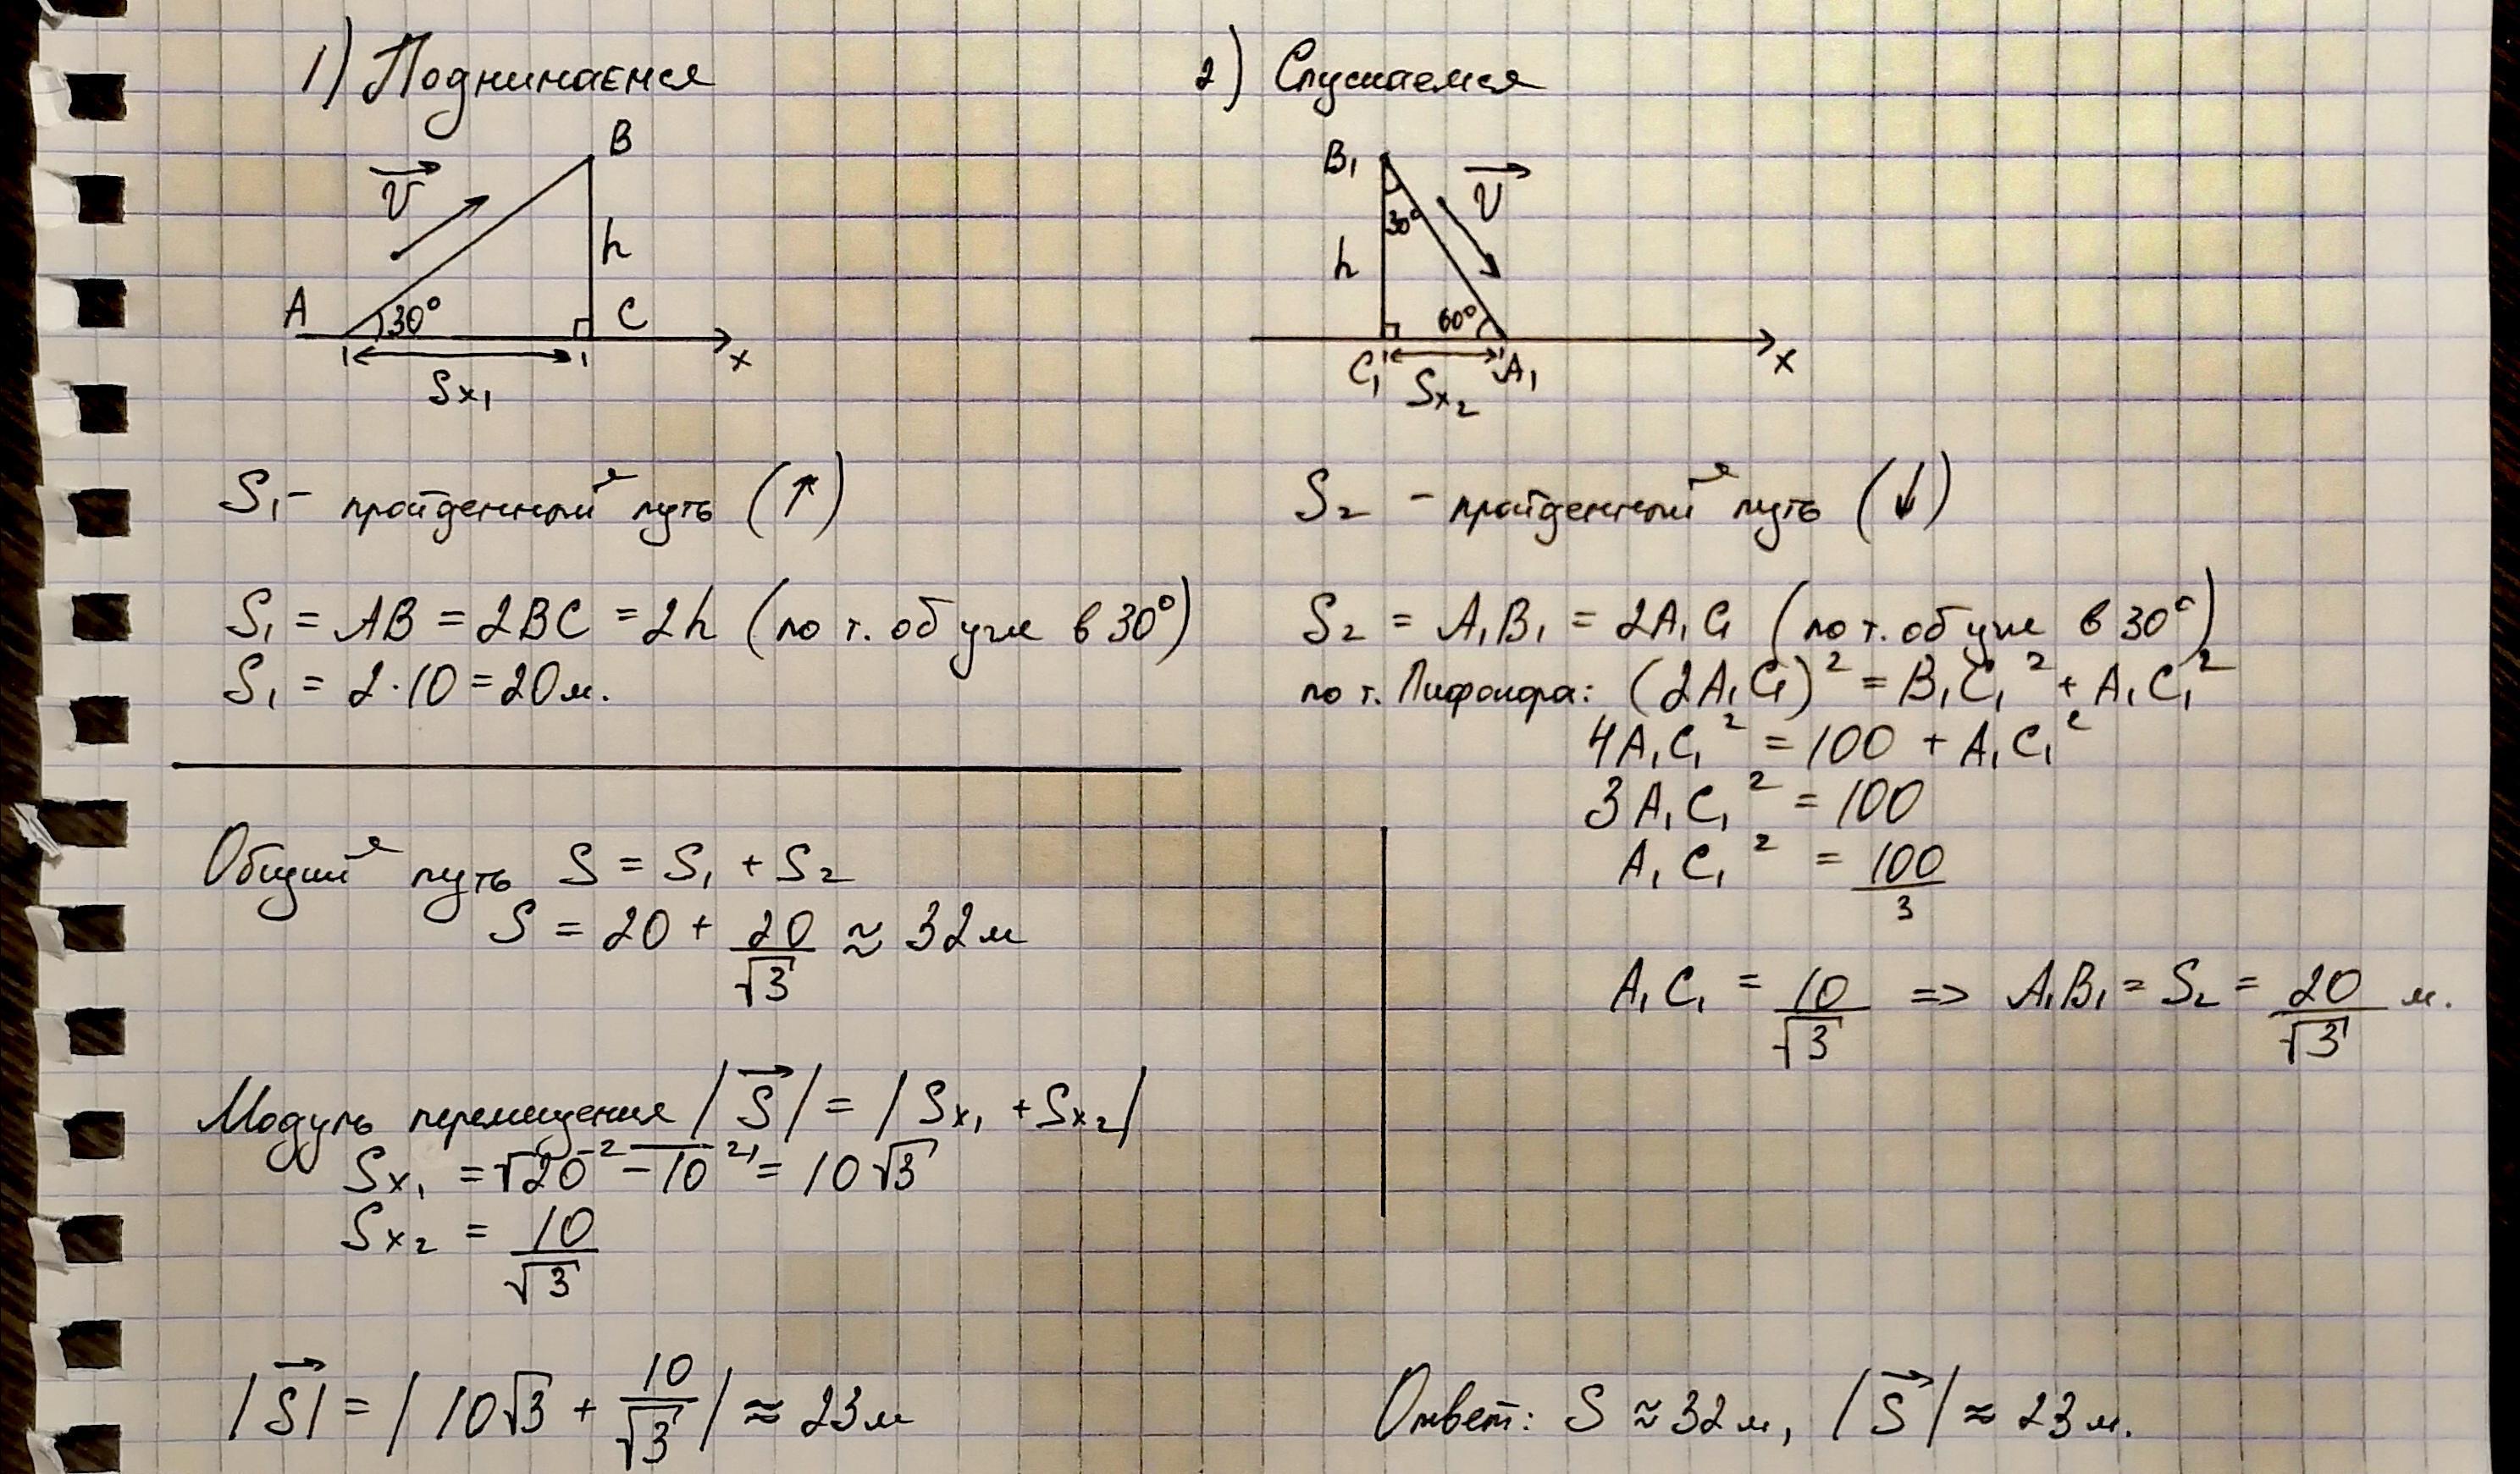 1) Поднимаемся
B
v
h
A
30°
C
x
Sx₁
S₁ - пройденный путь (↑)
S₁ = AB = 2BC = 2h (по т. об угле в 30°)
S₁ = 2·10 = 20м.
2) Спускаемся
B₁
v
30°
h
60°
C₁
A₁
x
Sx₂
S₂ - пройденный путь (↓)
S₂ = A₁B₁ = 2A₁C₁ (по т. об угле в 30°)
по т. Пифагора: (2A₁C₁)² = B₁C₁² + A₁C₁²
4A₁C₁² = 100 + A₁C₁²
3A₁C₁² = 100
A₁C₁² = 100/3
A₁C₁ = 10/√3 => A₁B₁ = S₂ = 20/√3 м.
Общий путь S = S₁ + S₂
S = 20 + 20/√3 ≈ 32м
Модуль перемещения |S⃗| = |Sx₁ + Sx₂|
Sx₁ = √(20² - 10²) = 10√3
Sx₂ = 10/√3
|S⃗| = |10√3 + 10/√3| ≈ 23м
Ответ: S ≈ 32м, |S⃗| ≈ 23м.